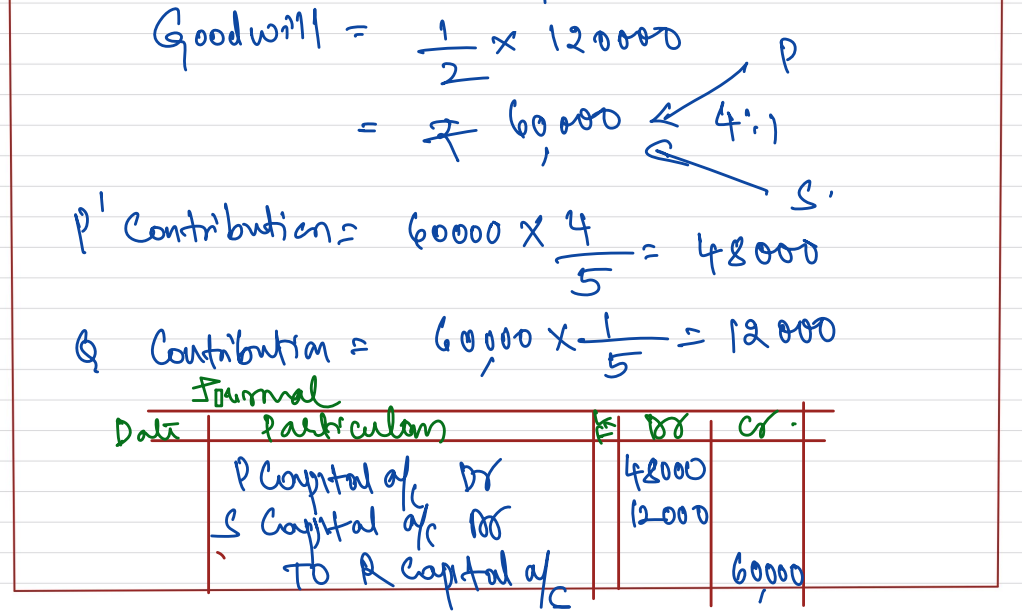 Goodwill = 1/2 × 120000
= 60,000 4:1 P
S.
P' Contribution = 60000 × 4/5 = 48000
Q Contribution = 60,000 × 1/5 = 12000
Journal
Date Particulars Dr Cr.
P Capital a/c Dr 48000
S Capital a/c Dr 12000
TO R Capital a/c 60000